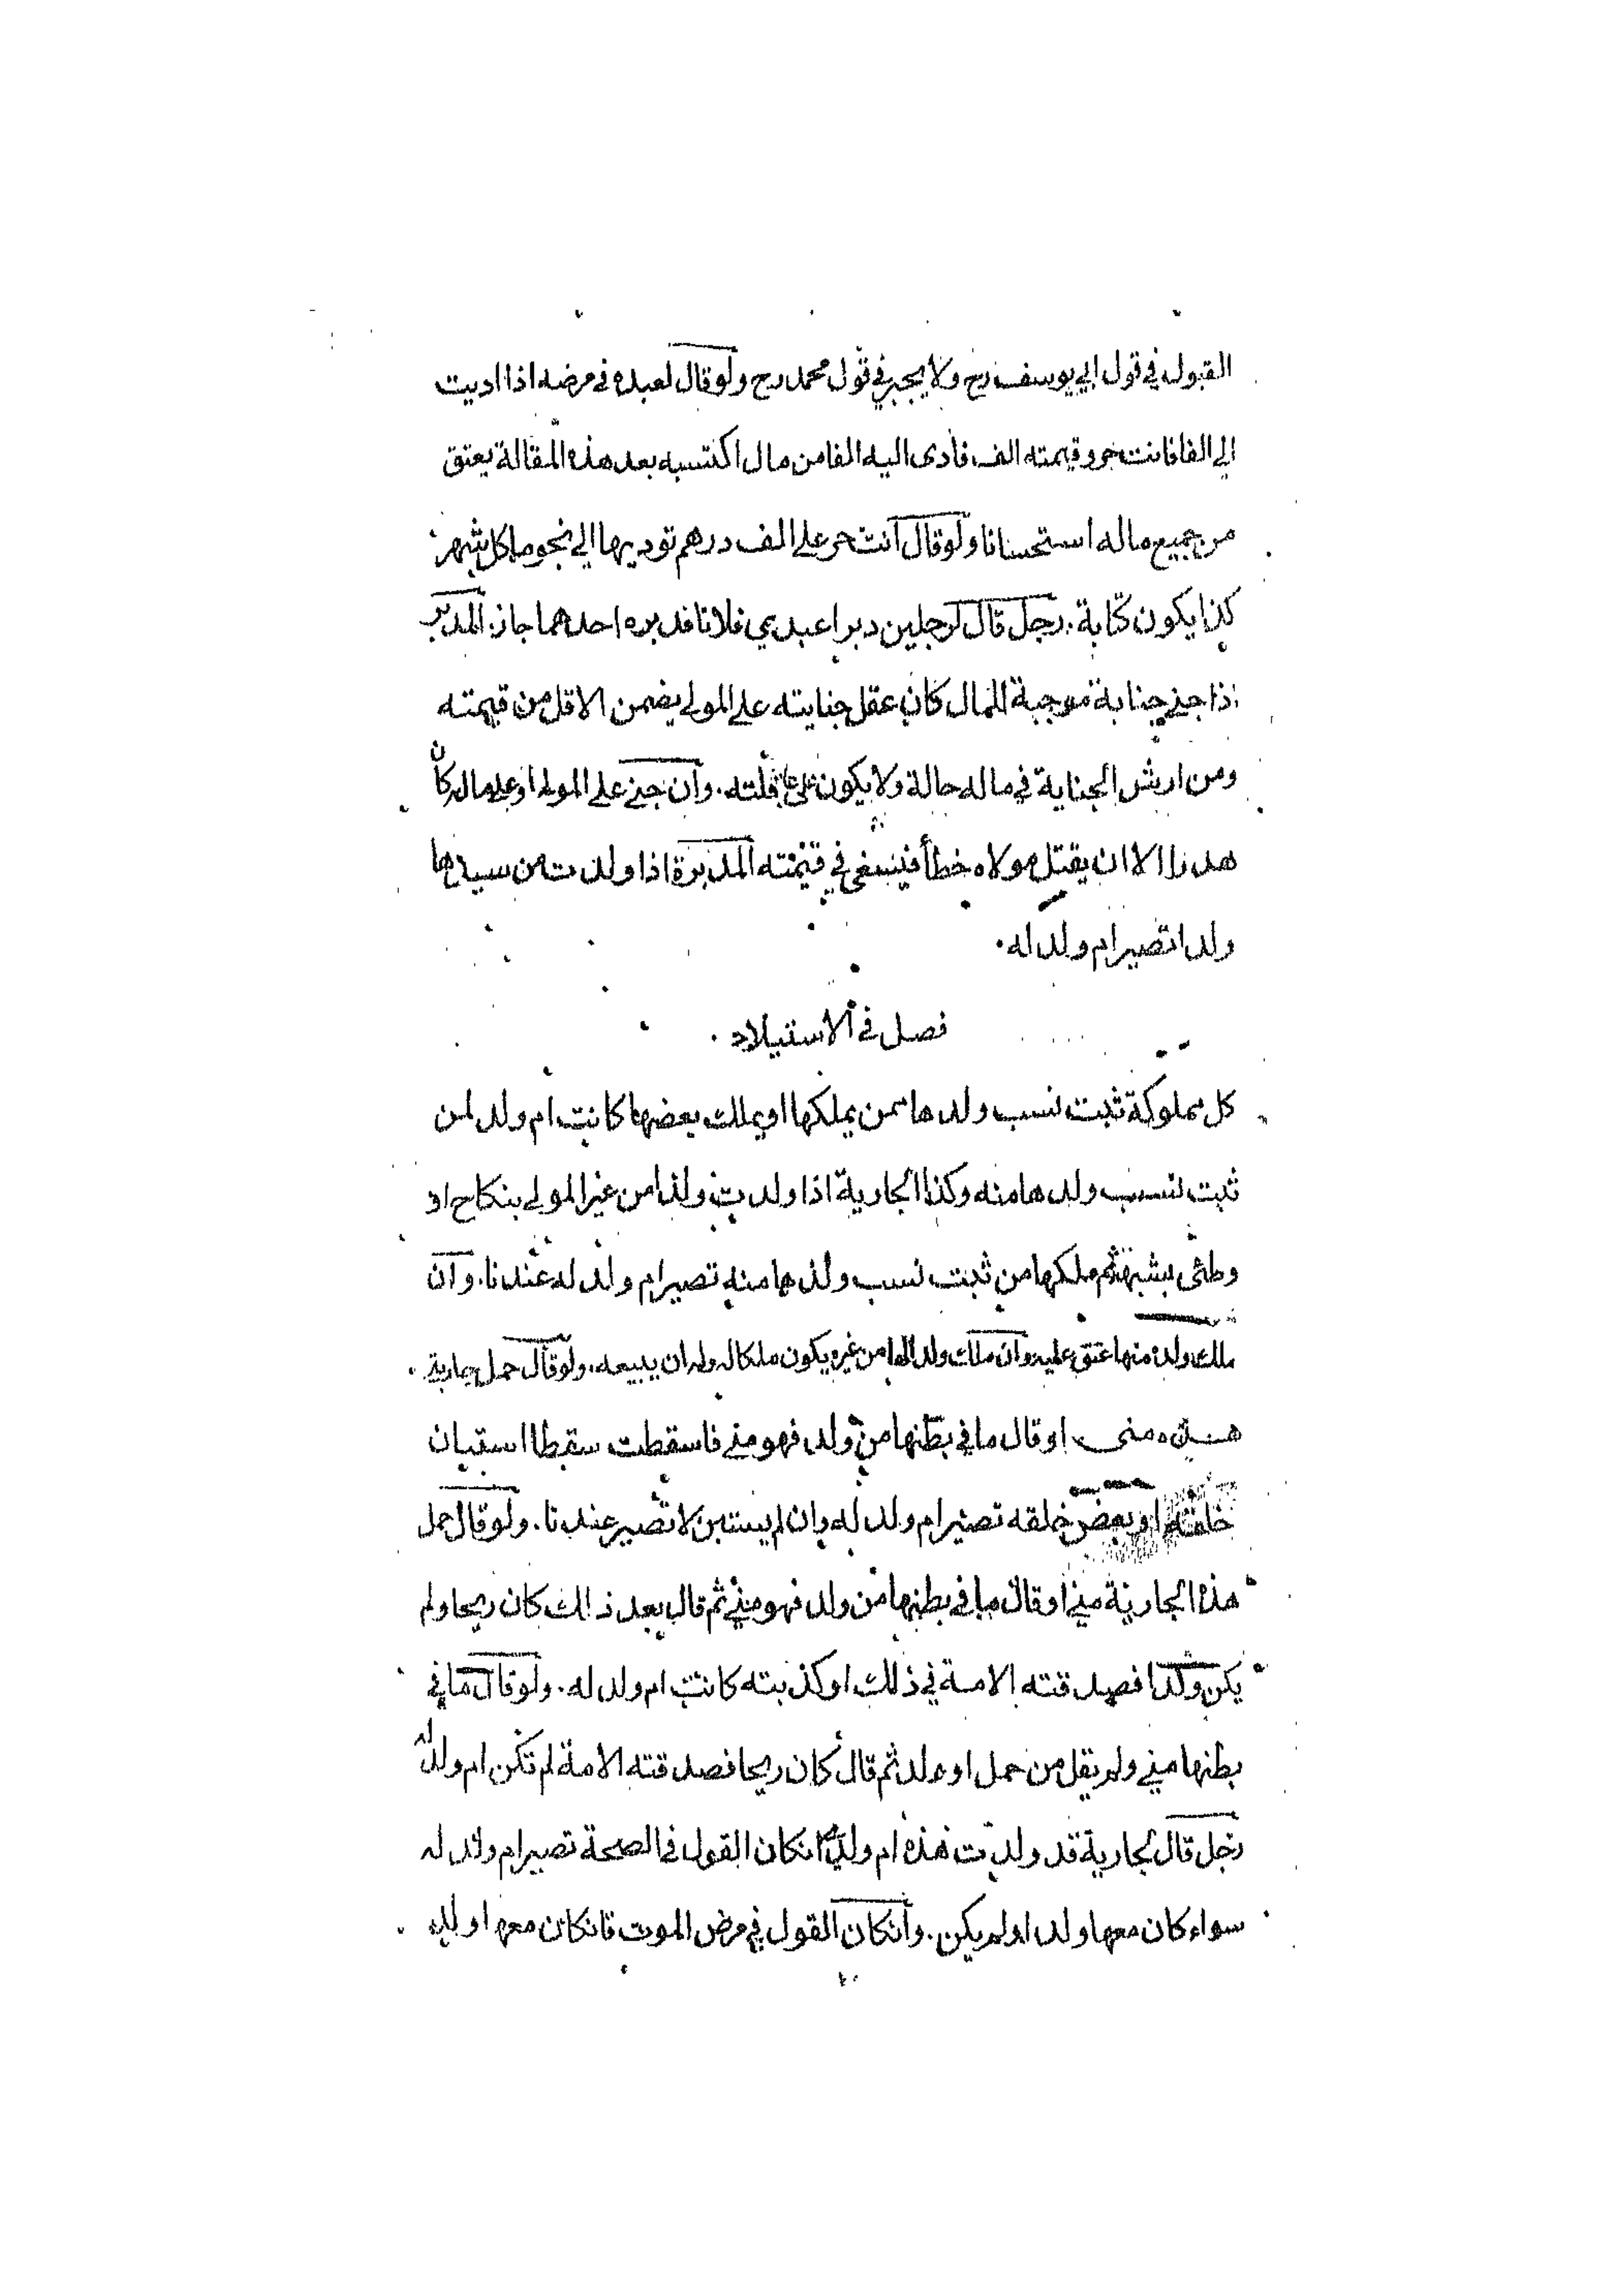 القبول في قول ابي يوسف رح ولا يجبر في قول محمد رح ولو قال لعبده في مرضه اذا اديت
الي الفا فانت حر وقيمته الف فادى اليه الفا من مال اكتسبه بعد هذه المقالة يعتق
من جميع ماله استحسانا ولو قال انت حر على الف درهم توديها الي نجوما كل شهر
كذا يكون كتابة. رجل قال لرجلين دبرا عبدي فلانا فدبره احدهما جاز. المدبر
اذا جنى جناية موجبة للمال كان عقل جنايته على المولى يضمن الاقل من قيمته
ومن ارش الجناية في ماله حالة ولا يكون على عاقلته. وان جنى على المولى او على ماله كان
هدرا الا ان يقتل مولاه خطأ فيسعى في قيمته المدبرة اذا ولدت من سيدها
ولدا تصير ام ولد له.
فصل في الاستيلاد.
كل مملوكة ثبت نسب ولدها ممن يملكها او يملك بعضها كانت ام ولد لمن
ثبت نسب ولدها منه وكذا الجارية اذا ولدت ولدا من غير المولى بنكاح او
وطئ بشبهة ثم ملكها من ثبت نسب ولدها منه تصير ام ولد له عندنا. وان
ملك ولده منها عتق عليه وان ملك ولدا لها من غيره يكون ملكا له وله ان يبيعه. ولو قال حمل جارية
هذه منى او قال ما في بطنها من ولد فهو مني فاسقطت سقطا استبان
خلقه او بعض خلقه تصير ام ولد له وان لم يستبن لا تصير عندنا. ولو قال حمل
هذه الجارية مني او قال ما في بطنها من ولد فهو مني ثم قال بعد ذلك كان ريحا ولم
يكن ولدا فصدقته الامة في ذلك او كذبته كانت ام ولد له. ولو قال ما في
بطنها مني ولم يقل من حمل او ولد ثم قال كان ريحا فصدقته الامة لم تكن ام ولد له
رجل قال لجارية قد ولدت هذه ام ولدي انكان القول في الصحة تصير ام ولد له
سواء كان معها ولد اولم يكن. وانكان القول في مرض الموت فانكان معها ولد